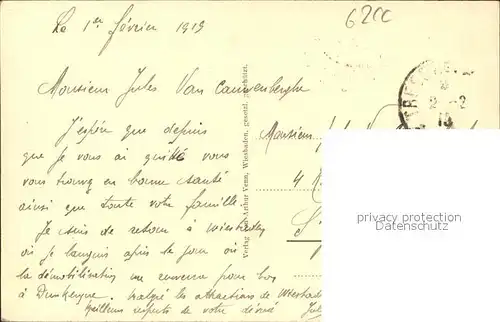 Le 1er février 1919
6200
Monsieur Jules Van Cauwenberghe
J'espère que depuis
que je vous ai quitté vous
vous trouvez en bonne santé
ainsi que toute votre famille.
Je suis de retour à Wiesbaden
où je languis après le jour où
la démobilisation me renverra pour bon
à Dunkerque. Malgré les attractions de Wiesbad
Meilleurs respects de votre dévoué Jul
Verlag Arthur Venn, Wiesbaden, gesetzl. geschützt.
Monsieur
4
privacy protection
Datenschutz